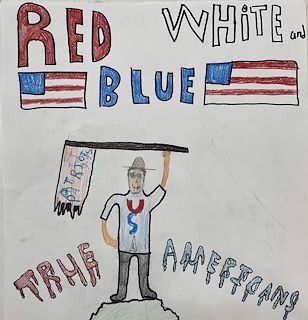 RED WHITE and
BLUE
PATRIOTS
U
S
TRUE AMERICANS